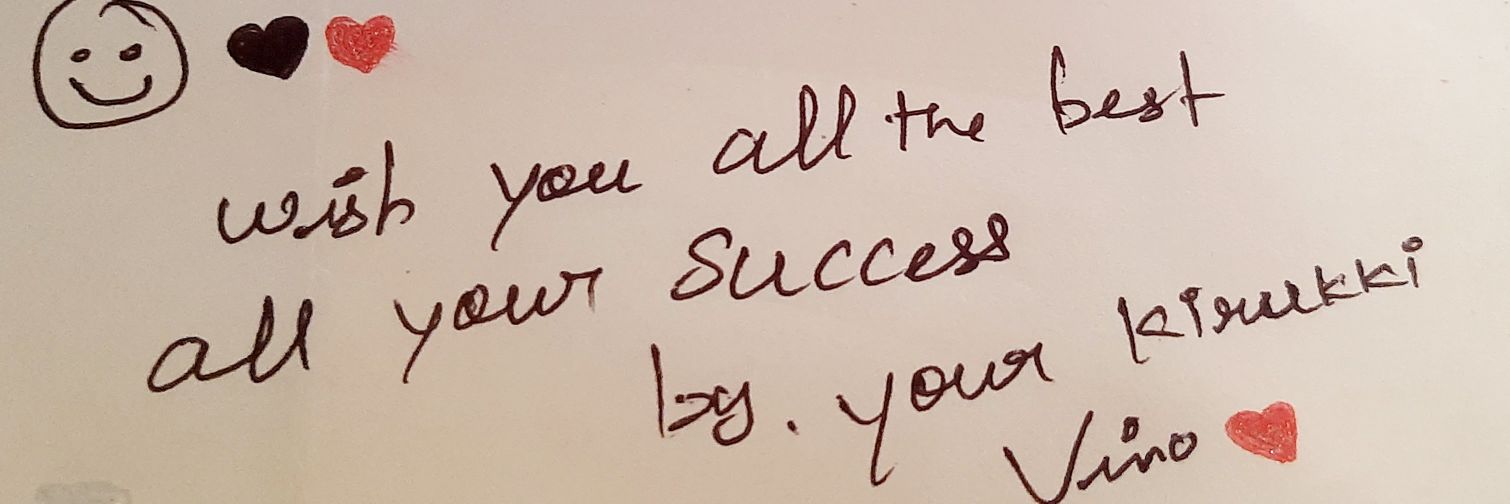 wish you all the best
all your success
by. your kirukki
Vino